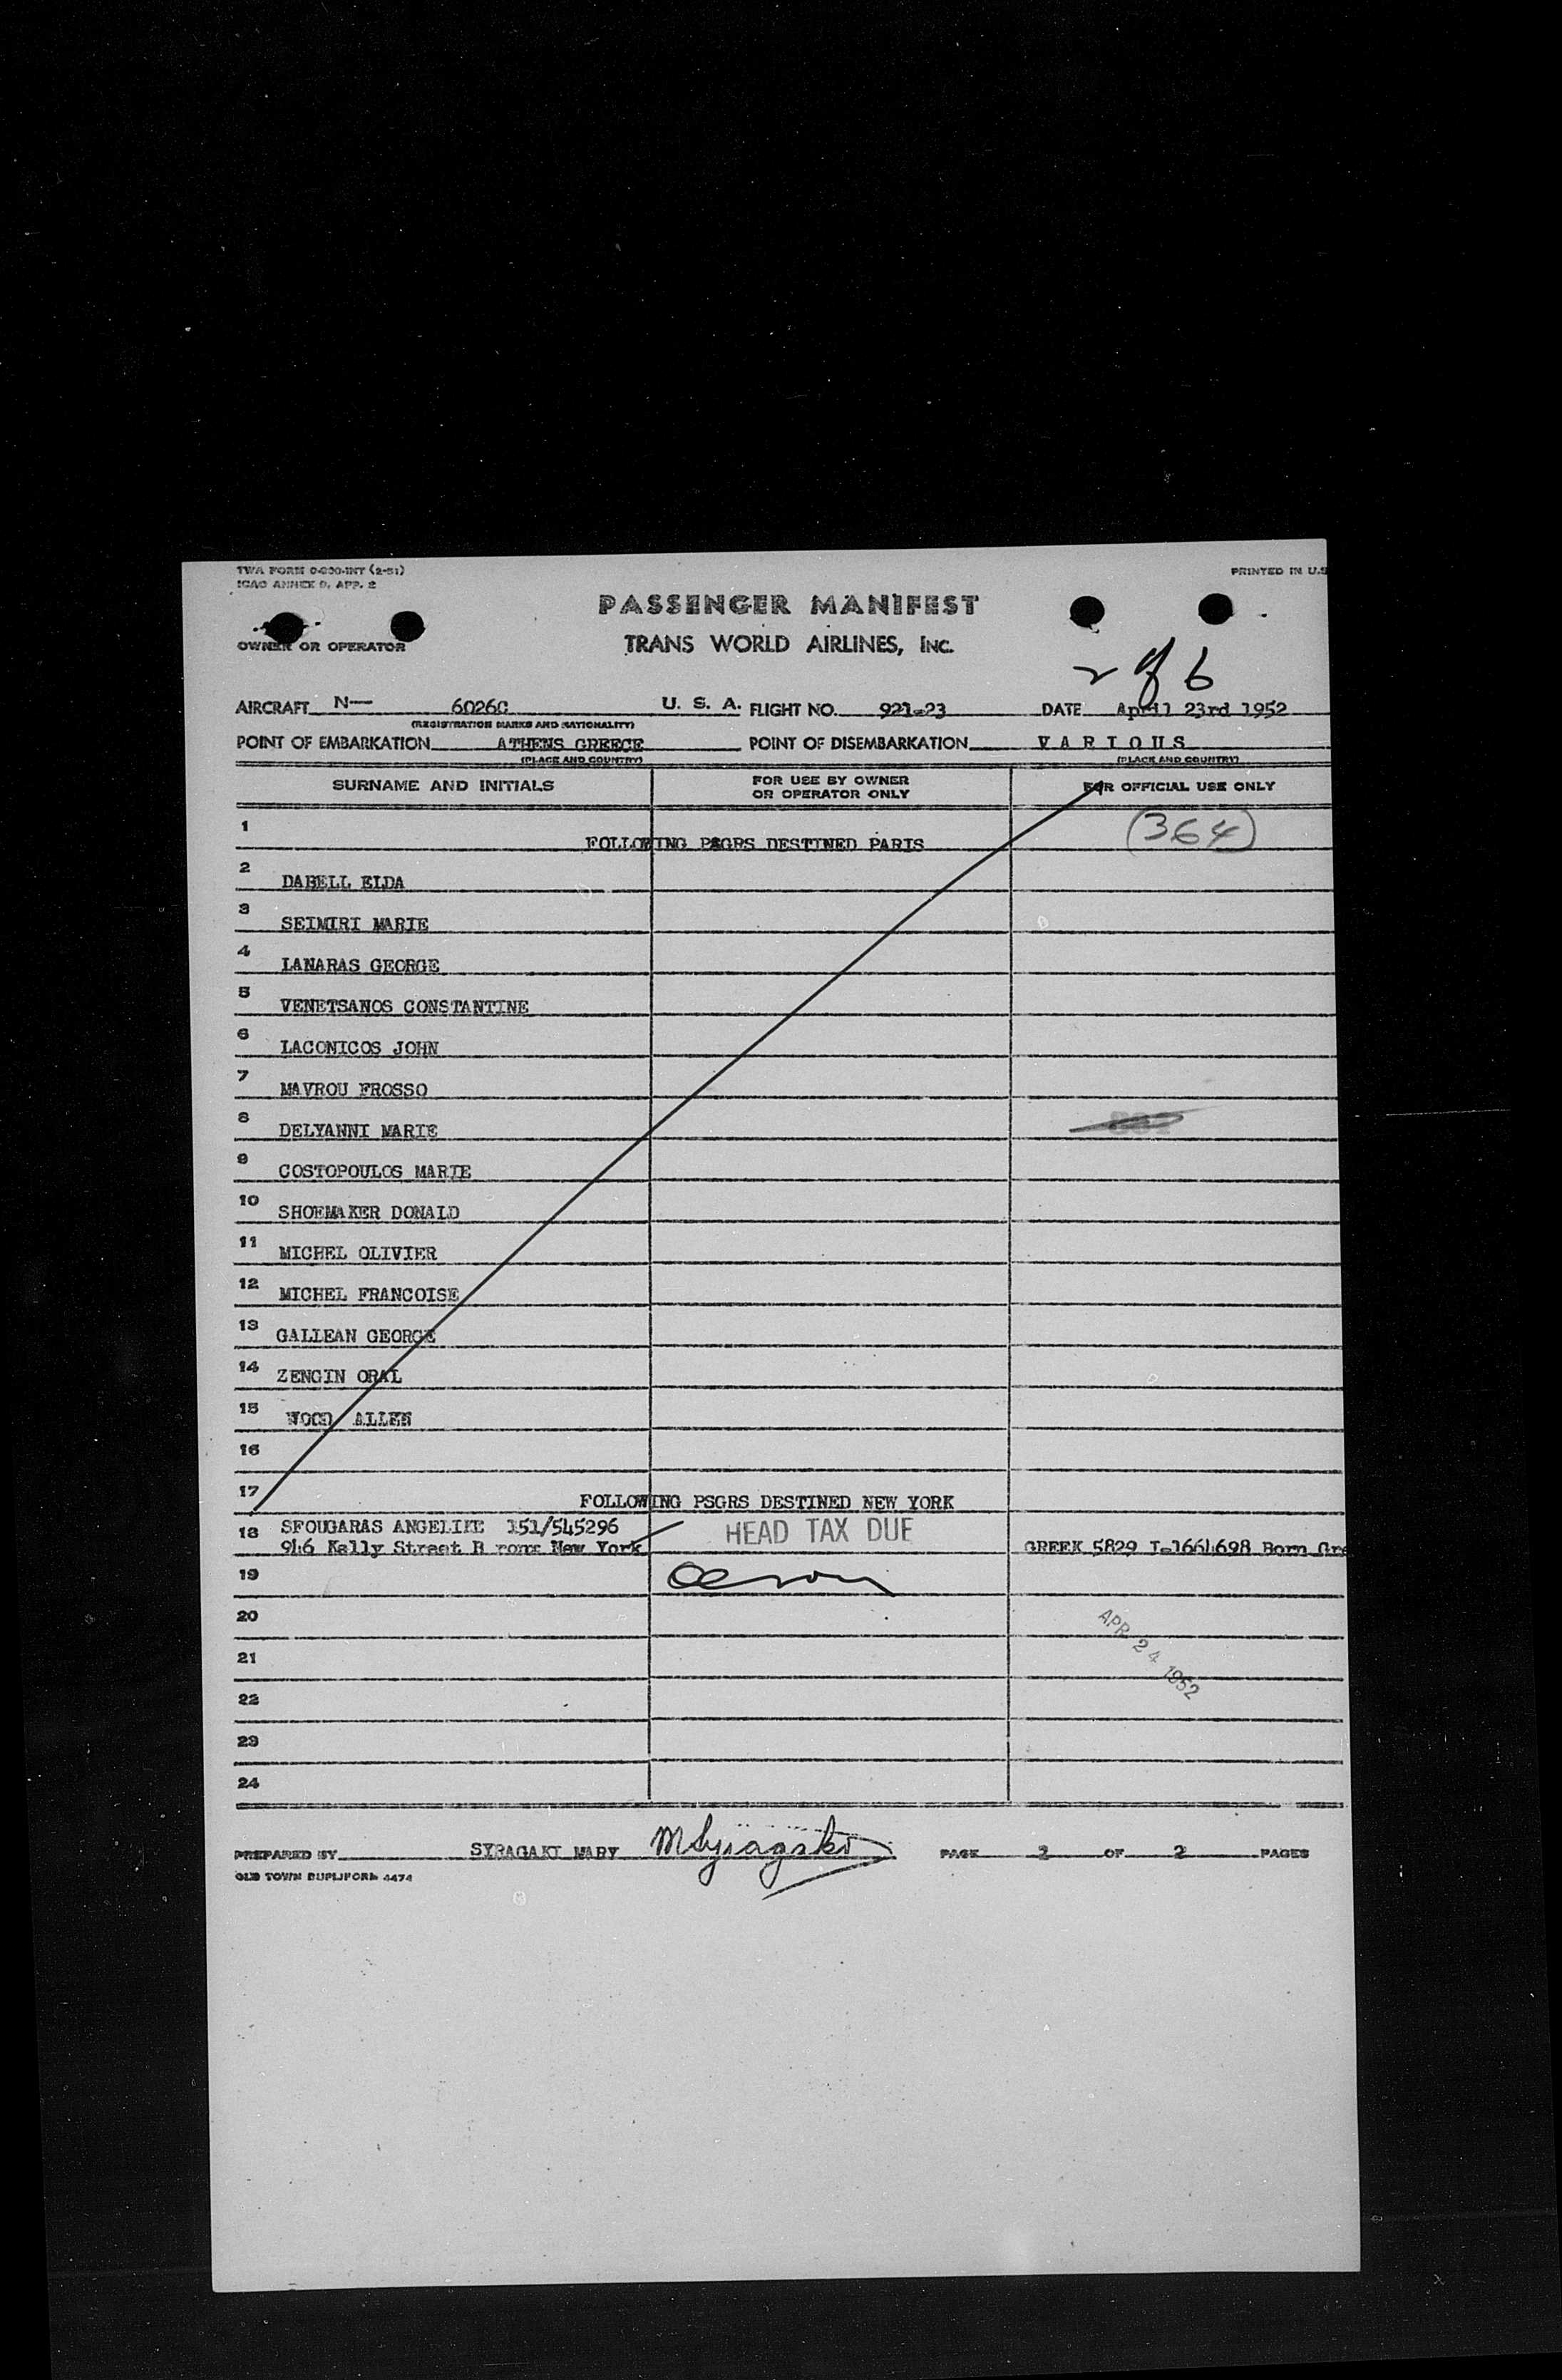 TWA FORM 0-200-INT (2-51)
ICAO ANNEX 9, APP. 2
PRINTED IN U.S
PASSENGER MANIFEST
OWNER OR OPERATOR
TRANS WORLD AIRLINES, INC.
2 of 6
AIRCRAFT N— 6026C U. S. A. FLIGHT NO. 921-23 DATE April 23rd 1952
(REGISTRATION MARKS AND NATIONALITY)
POINT OF EMBARKATION ATHENS GREECE POINT OF DISEMBARKATION V A R I O U S
(PLACE AND COUNTRY) (PLACE AND COUNTRY)
SURNAME AND INITIALS FOR USE BY OWNER OR OPERATOR ONLY FOR OFFICIAL USE ONLY
1 FOLLOWING PSGRS DESTINED PARIS (364)
2 DABELL ELDA
3 SEIMIRI MARIE
4 LANARAS GEORGE
5 VENETSANOS CONSTANTINE
6 LACONICOS JOHN
7 MAVROU FROSSO
8 DELYANNI MARIE
9 COSTOPOULOS MARIE
10 SHOEMAKER DONALD
11 MICHEL OLIVIER
12 MICHEL FRANCOISE
13 GALLEAN GEORGE
14 ZENGIN ORAL
15 WOOD ALLEN
16
17 FOLLOWING PSGRS DESTINED NEW YORK
18 SFOUGARAS ANGELIKE 151/545296 HEAD TAX DUE
946 Kelly Street B ronx New York GREEK 5829 I-1664698 Born Gre
19
20
APR 24 1952
21
22
23
24
PREPARED BY SYRAGAKI MARY PAGE 2 OF 2 PAGES
OLD TOWN DUPLIFORM 4474